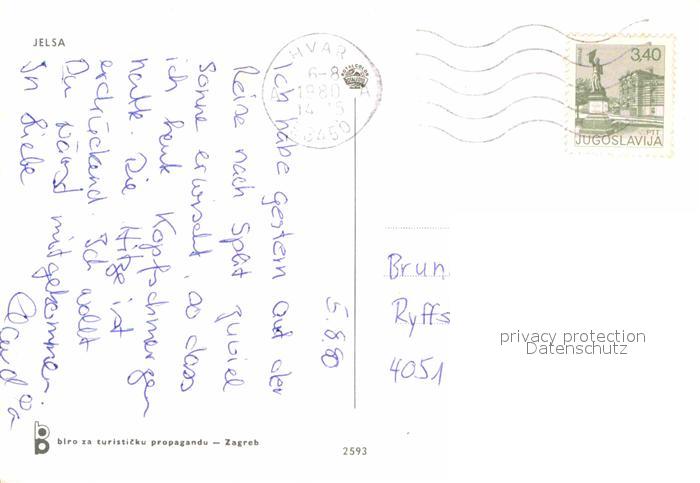 JELSA
HVAR
6-8
1980
14-15
58450
3,40
PTT
JUGOSLAVIJA
5.8.80
Ich habe gestern auf der
Reise nach Split zuviel
Sonne erwischt, so dass
ich heut Kopfschmerzen
hatte. Die Hitze ist
erdrückend. Ich wollt
Du wärst mitgekommen.
In Liebe
Brun
Ryffs
4051
privacy protection
Datenschutz
biro za turističku propagandu – Zagreb
2593